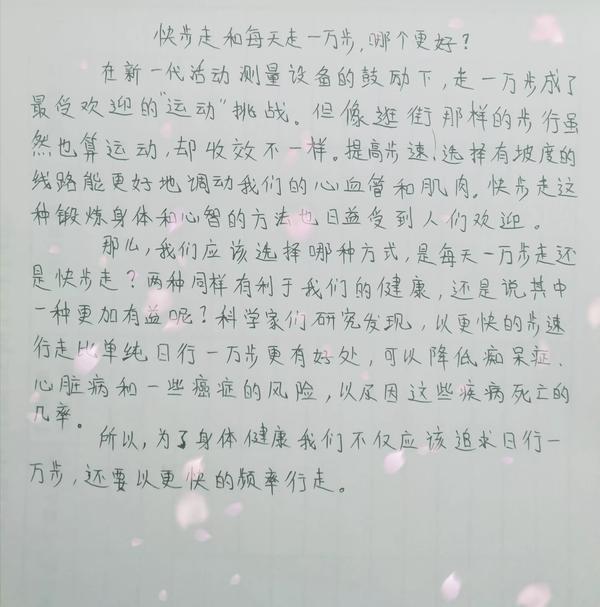 快步走和每天走一万步,哪个更好?
在新一代活动测量设备的鼓励下,走一万步成了
最受欢迎的"运动"挑战。但像逛街那样的步行虽
然也算运动,却收效不一样。提高步速、选择有坡度的
线路能更好地调动我们的心血管和肌肉。快步走这
种锻炼身体和心智的方法也日益受到人们欢迎。
那么,我们应该选择哪种方式,是每天一万步走还
是快步走?两种同样有利于我们的健康,还是说其中
一种更加有益呢?科学家们研究发现,以更快的步速
行走比单纯日行一万步更有好处,可以降低痴呆症、
心脏病和一些癌症的风险,以及因这些疾病死亡的
几率。
所以,为了身体健康我们不仅应该追求日行一
万步,还要以更快的频率行走。